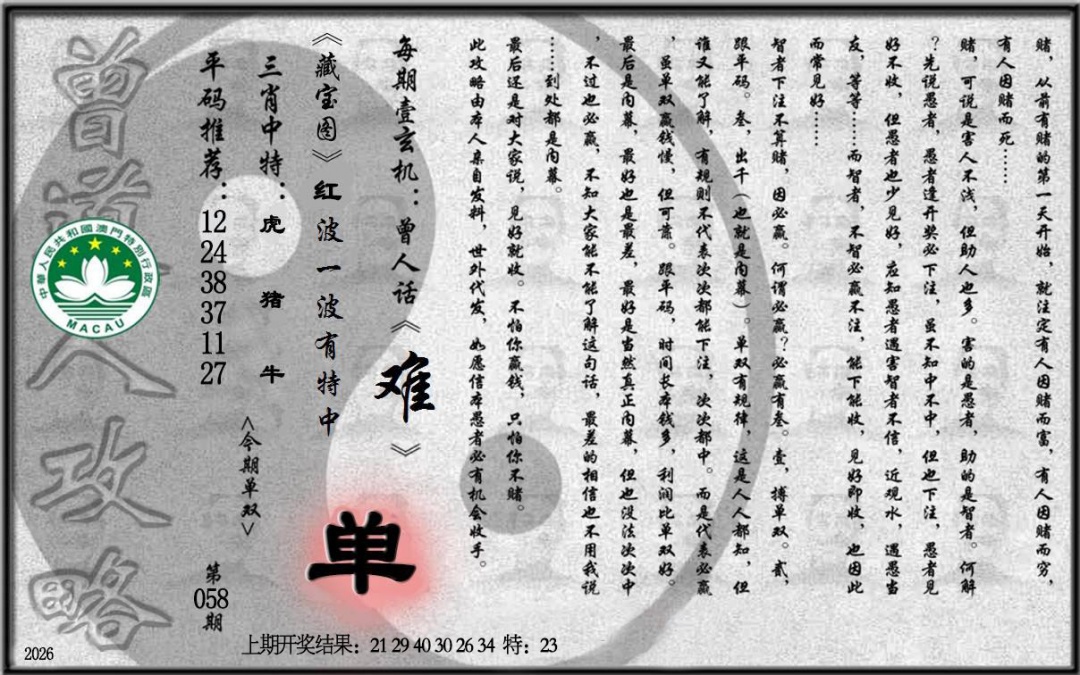 赌，从前有赌的第一天开始，就注定有人因赌而富，有人因赌而穷，
有人因赌而死……
赌，可说是害人不浅，但助人也多。害的是愚者，助的是智者。何解
？先说愚者，愚者逢开奖必下注，虽不知中不中，但也下注，愚者见
好不收，但愚者也少见好，应知愚者遇害智者不信，近观水，遇愚当
友，等等……而智者，不智必赢不注，能下能收，见好即收，也因此
而常见好……
智者下注不算赌，因必赢。何谓必赢？必赢有叁。壹，搏单双。贰，
跟平码。叁，出千（也就是内幕）。单双有规律，这是人人都知，但
谁又能了解，有规则不代表次次都能下注，次次都中。而是代表必赢
，虽单双赢钱慢，但可靠。跟平码，时间长本钱多，利润比单双好。
最后是内幕，最好也是最差，最好是当然真正内幕，但也没法次次中
，不过也必赢，不知大家能不能了解这句话，最差的相信也不用我说
……到处都是内幕。
最后还是对大家说，见好就收。不怕你赢钱，只怕你不赌。
此攻略由本人亲自发料，世外代发，如愿信本愚者必有机会收手。
每期壹玄机：曾人话《难》
《藏宝图》红波一波有特中
三肖中特：虎 猪 牛
平码推荐：12 24 38 37 11 27
<今期单双>
单
第058期
曾道人攻略
中華人民共和國澳門特別行政區
MACAU
上期开奖结果：21 29 40 30 26 34 特：23
2026